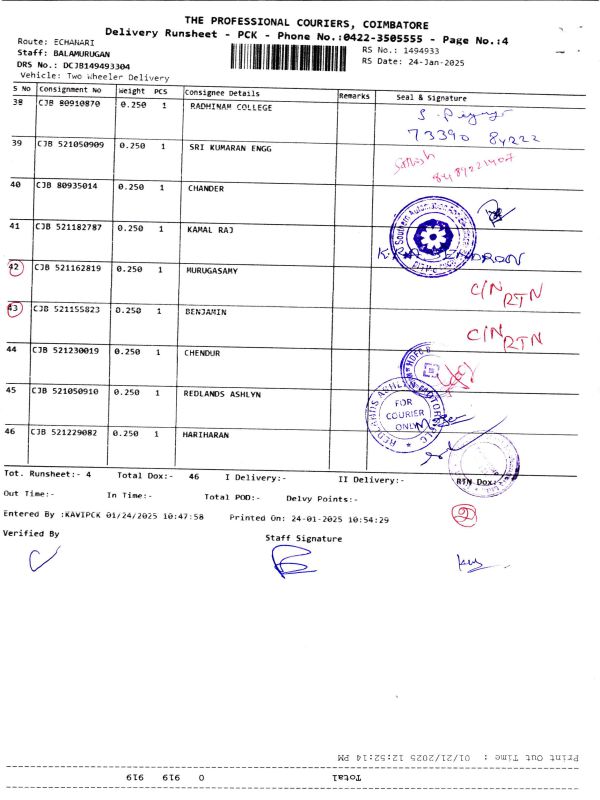 THE PROFESSIONAL COURIERS, COIMBATORE
Delivery Runsheet - PCK - Phone No.:0422-3505555 - Page No.:4
Route: ECHANARI
RS No.: 1494933
Staff: BALAMURUGAN
RS Date: 24-Jan-2025
DRS No.: DCJB149493304
Vehicle: Two Wheeler Delivery
S No Consignment No Weight PCS Consignee Details Remarks Seal & Signature
38 CJB 80910870 0.250 1 RADHINAM COLLEGE
73390 84222
39 CJB 521050909 0.250 1 SRI KUMARAN ENGG
40 CJB 80935014 0.250 1 CHANDER
41 CJB 521182787 0.250 1 KAMAL RAJ
42 CJB 521162819 0.250 1 MURUGASAMY C/N RTN
43 CJB 521155823 0.250 1 BENJAMIN C/N RTN
44 CJB 521230019 0.250 1 CHENDUR
45 CJB 521050910 0.250 1 REDLANDS ASHLYN
REDLANDS ASHLYN MOTORS
FOR
COURIER
ONLY
46 CJB 521229082 0.250 1 HARIHARAN
Tot. Runsheet:- 4 Total Dox:- 46 I Delivery:- II Delivery:- RTN Dox:-
Out Time:- In Time:- Total POD:- Delvy Points:-
2
Entered By :KAVIPCK 01/24/2025 10:47:58 Printed On: 24-01-2025 10:54:29
Verified By Staff Signature
Print Out Time : 01/21/2025 12:52:14 PM
Total 0 919 919